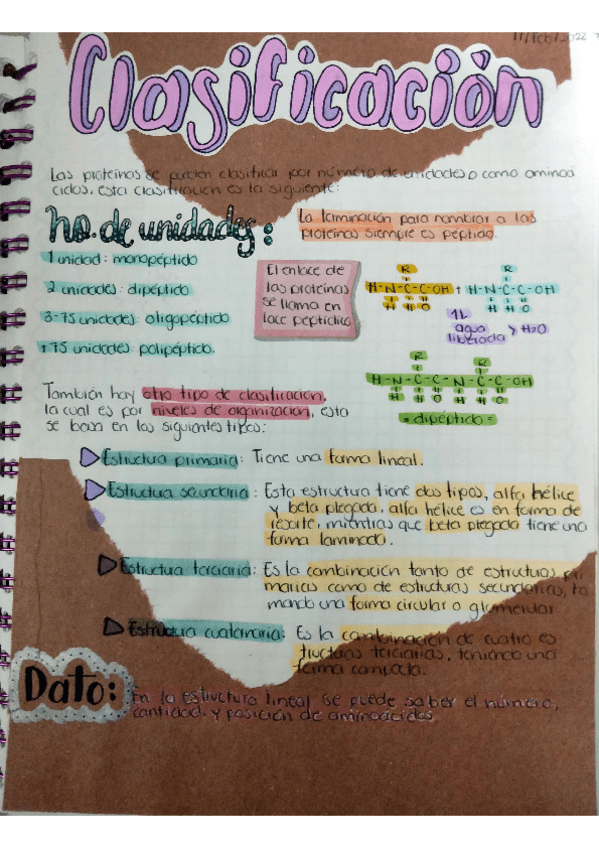 11/Feb/2022
Clasificación
Las proteínas se pueden clasificar por número de unidades o como aminoá
cidos, esta clasificación es la siguiente:
No. de unidades:
La terminación para nombrar a las
proteínas siempre es péptido.
1 unidad: monopéptido
2 unidades: dipéptido
3-75 unidades: oligopéptido
+75 unidades: polipéptido.
El enlace de
las proteínas
se llama en
lace peptídico
R R
H-N-C-C-OH + H-N-C-C-OH
H H O H H O
agua > H2O
liberada
R R
H-N-C-C-N-C-C-OH
H H O H H O
= dipéptido =
También hay otro tipo de clasificación,
la cual es por niveles de organización, esta
se basa en los siguientes tipos:
Estructura primaria: Tiene una forma lineal.
Estructura secundaria: Esta estructura tiene dos tipos, alfa hélice
y beta plegada, alfa hélice es en forma de
resorte, mientras que beta plegada tiene una
forma laminada.
Estructura terciaria: Es la combinación tanto de estructuras pri
marias como de estructuras secundarias, to
mando una forma circular o glomerular.
Estructura cuaternaria: Es la combinación de cuatro es
tructuras terciarias, teniendo una
forma compacta.
Dato: En la estructura lineal se puede saber el número,
cantidad y posición de aminoácidos